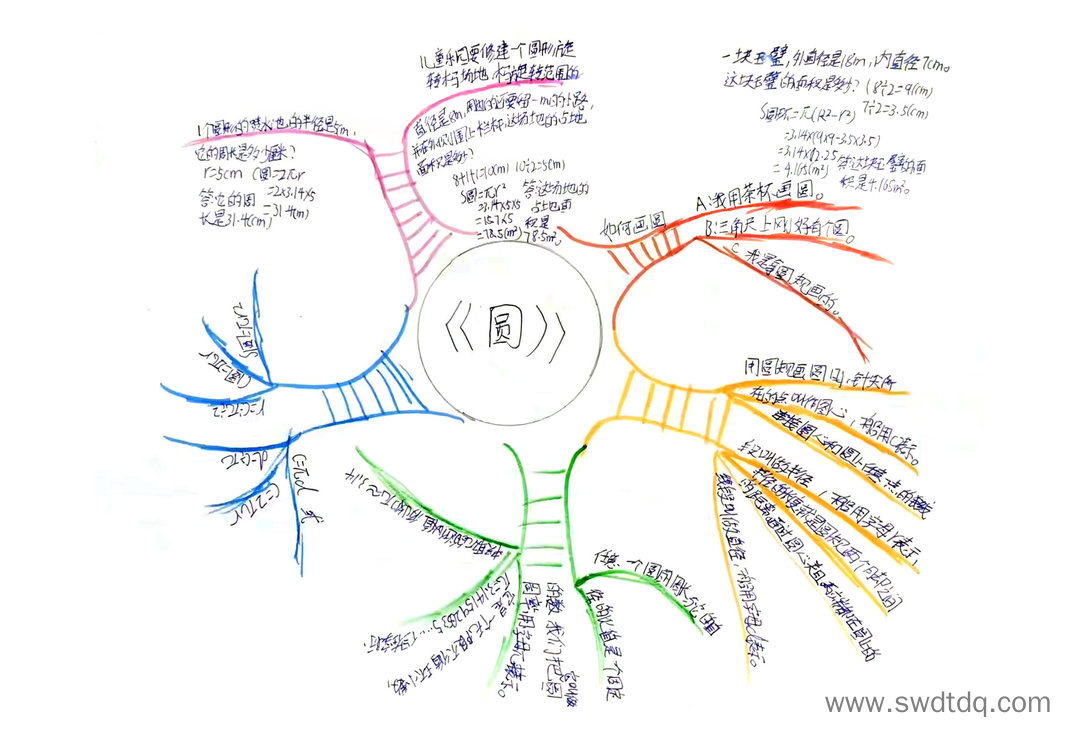 儿童乐园要修建一个圆形旋
转木马场地,木马旋转范围的
直径是8m,周围还要留一m宽的小路,
并在外侧围上栏杆,这场地的占地
面积是多少?
8+1+1=10(m) 10÷2=5(m)
S圆=πr²
=3.14×5×5
=15.7×5
=78.5(m²)
答:这场地的
占地面
积是
78.5m²。
一块玉璧,外直径是18m,内直径7cm。
这块玉璧的面积是多少?
18÷2=9(cm)
7÷2=3.5(cm)
S圆环=π(R²-r²)
=3.14×(9×9-3.5×3.5)
=4.165(m²)
答:这块玉璧的面
积是4.165m²。
1个圆形的喷水池的半径是5m,
它的周长是多少厘米?
r=5cm C圆=2πr
=2×3.14×5
=31.4(m)
答:它的周
长是31.4(cm)
《圆》
如何画圆
A:我用茶杯画圆。
B:三角尺上刚好有个圆。
C 我是拿圆规画的。
用圆规画圆时,针尖所
在的点叫作圆心,一般用C表示。
连接圆心和圆上任意一点的线段
叫做半径,一般用字母r表示,
半径的长度就是圆规两个脚之间
的距离。通过圆心并且两端都在圆上的
线段叫做直径,一般用字母d表示。
任意一个圆的周长与它的直
径的比值是一个固定
的数,我们把它叫做
圆周率,用字母π表示。
它是一个无限不循环小数,
π=3.14159265……
S圆=πr²
C圆=2πr
r=C÷π÷2
d=C÷π
C=2πr
C=πd
www.swdtdq.com